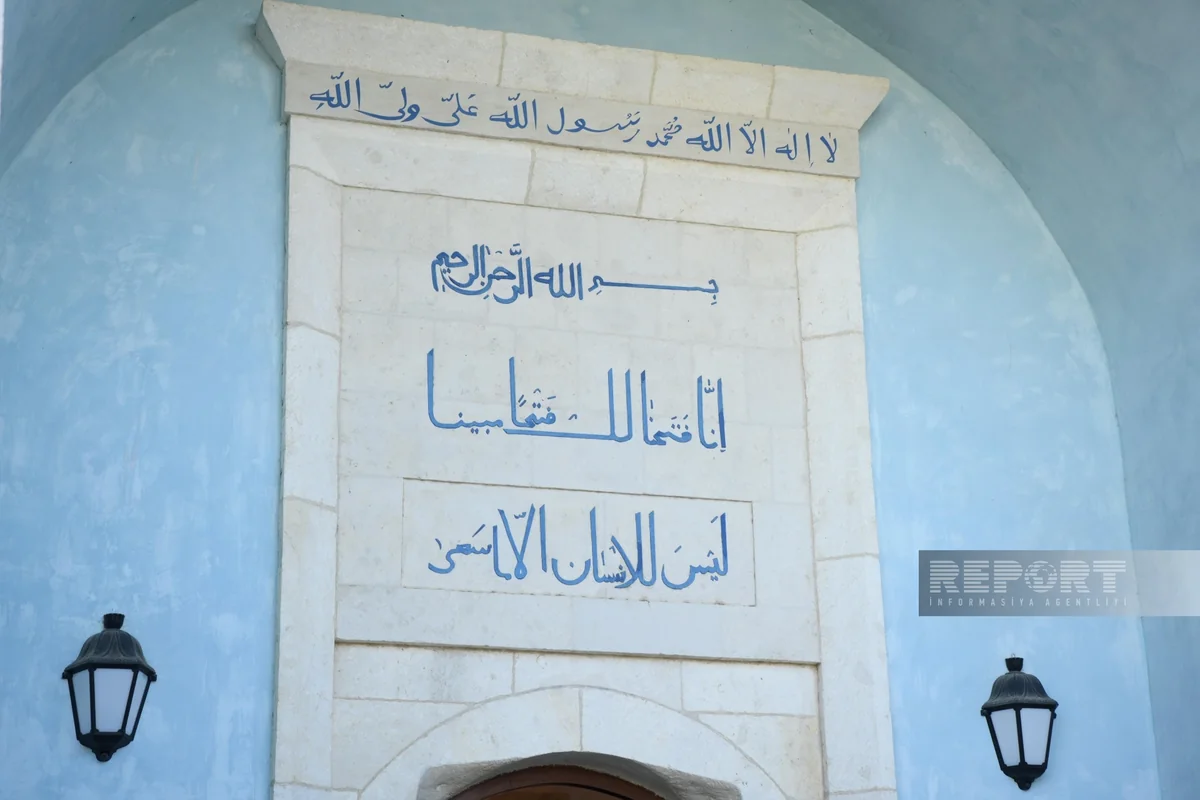 لا اله الّا اللّه محمّد رَسُول اللّه عَلیّ ولیّ اللّهِ
بِسمِ الله الرَّحمنِ الرحيم
اِنّا فَتَحنا لك فَتْحًا مبينا
لَيْسَ للاِنسانِ الّا ما سَعىٰ
REPORT
İNFORMASİYA AGENTLİYİ